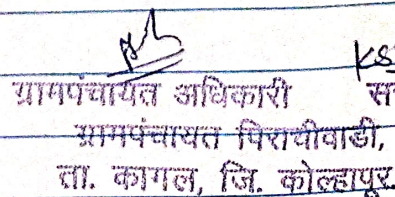 ग्रामपंचायत अधिकारी
ग्रामपंचायत पिराचीवाडी,
ता. कागल, जि. कोल्हापूर.